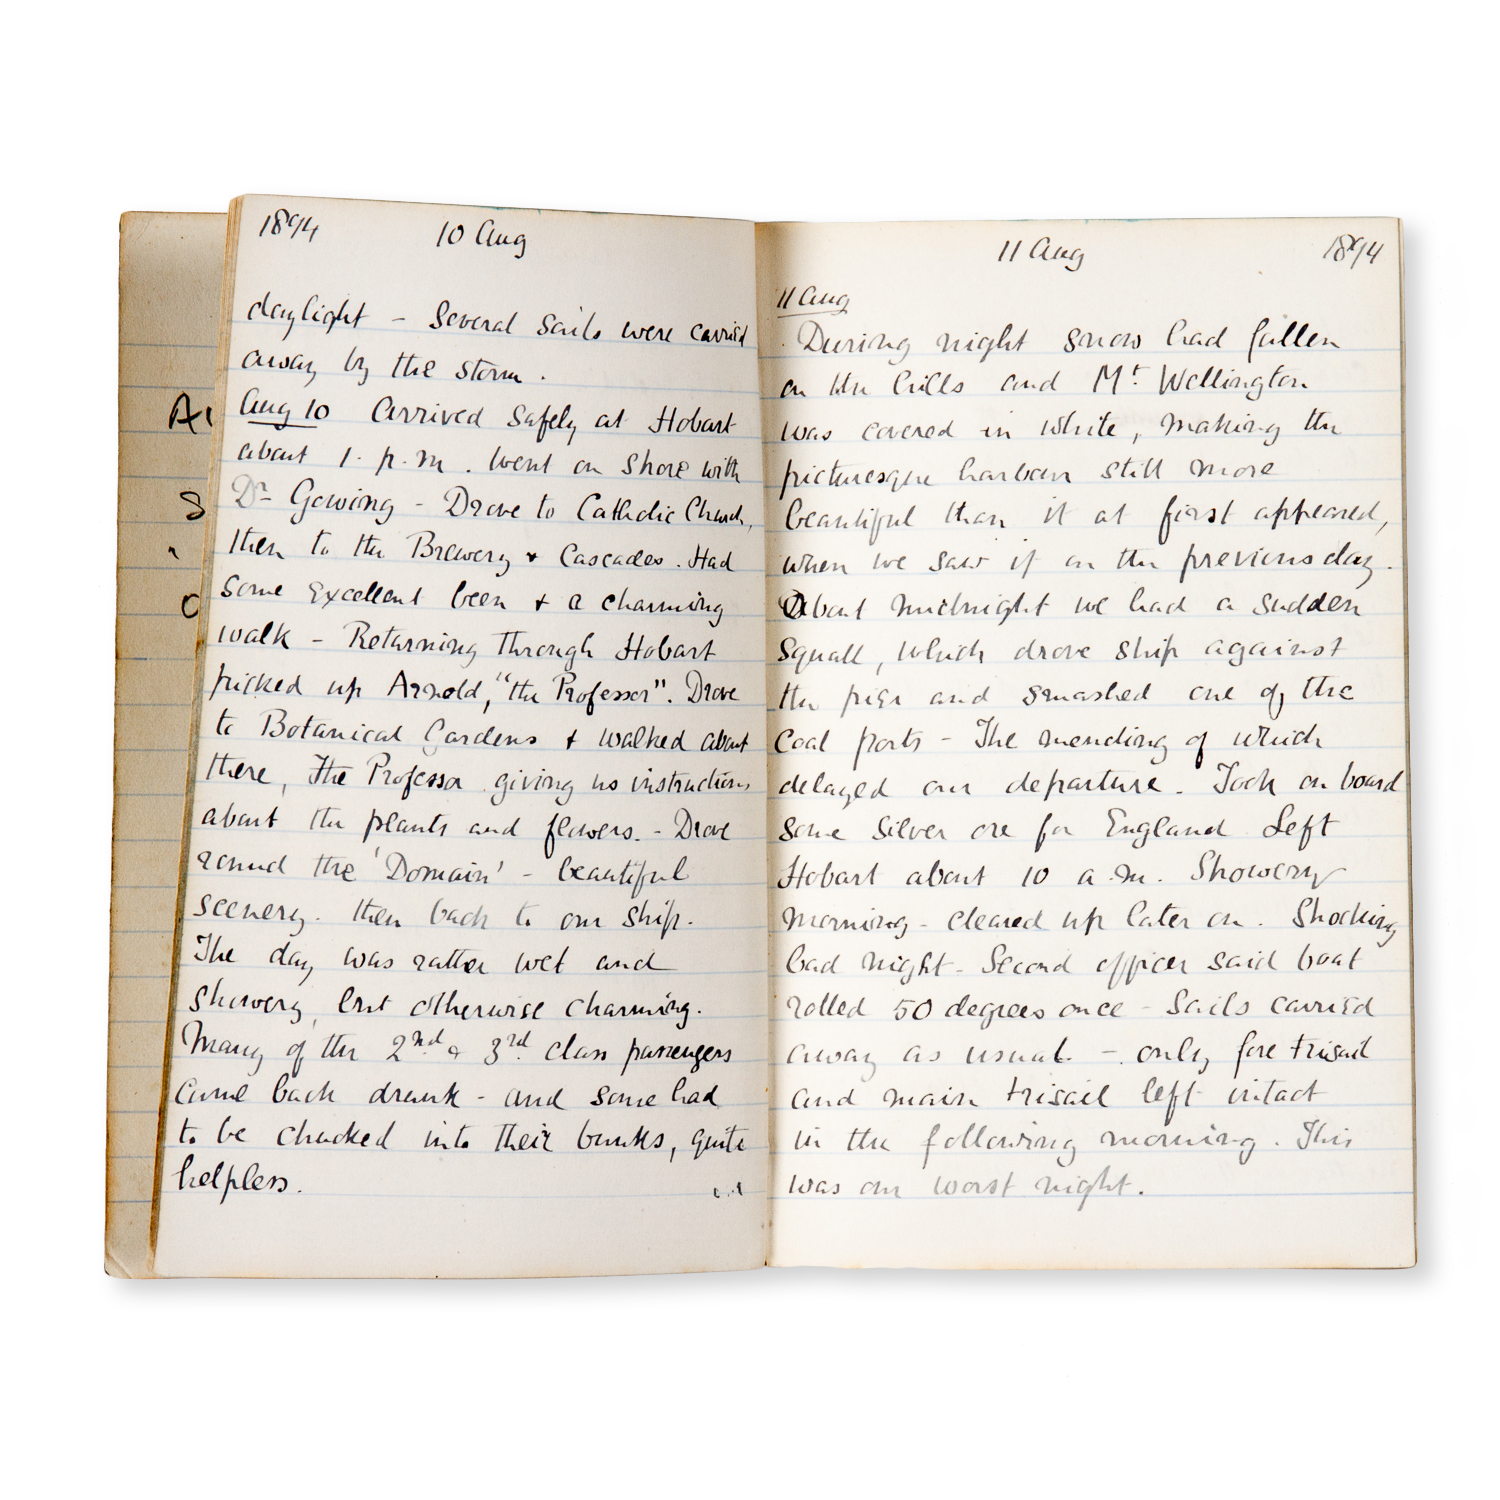 1894 10 Aug
daylight - Several Sails were carried
away by the storm.
Aug 10 Arrived Safely at Hobart
about 1. p.m. Went on Shore with
Dr Gowing - Drove to Catholic Church,
then to the Brewery + Cascades. Had
some Excellent beer + a charming
walk - Returning through Hobart
picked up Arnold, "the Professor". Drove
to Botanical Gardens + walked about
there, The Professor giving us instructions
about the plants and flowers. - Drove
round the 'Domain' - beautiful
scenery. then back to our ship.
The day was rather wet and
showery, but otherwise charming.
Many of the 2nd & 3rd class passengers
came back drunk - and some had
to be chucked into their bunks, quite
helpless.
11 Aug 1894
11 Aug
During night snow had fallen
on the hills and Mt Wellington
was covered in white, making the
picturesque harbour still more
beautiful than it at first appeared,
when we saw it on the previous day.
About midnight we had a sudden
Squall, which drove ship against
the pier and smashed one of the
Coal ports - The mending of which
delayed our departure. Took on board
some Silver ore for England Left
Hobart about 10 a.m. Showery
morning - cleared up later on. Shocking
bad night - Second officer said boat
rolled 50 degrees once - Sails carried
away as usual - only fore trisail
and main trisail left intact
in the following morning. This
was our worst night.